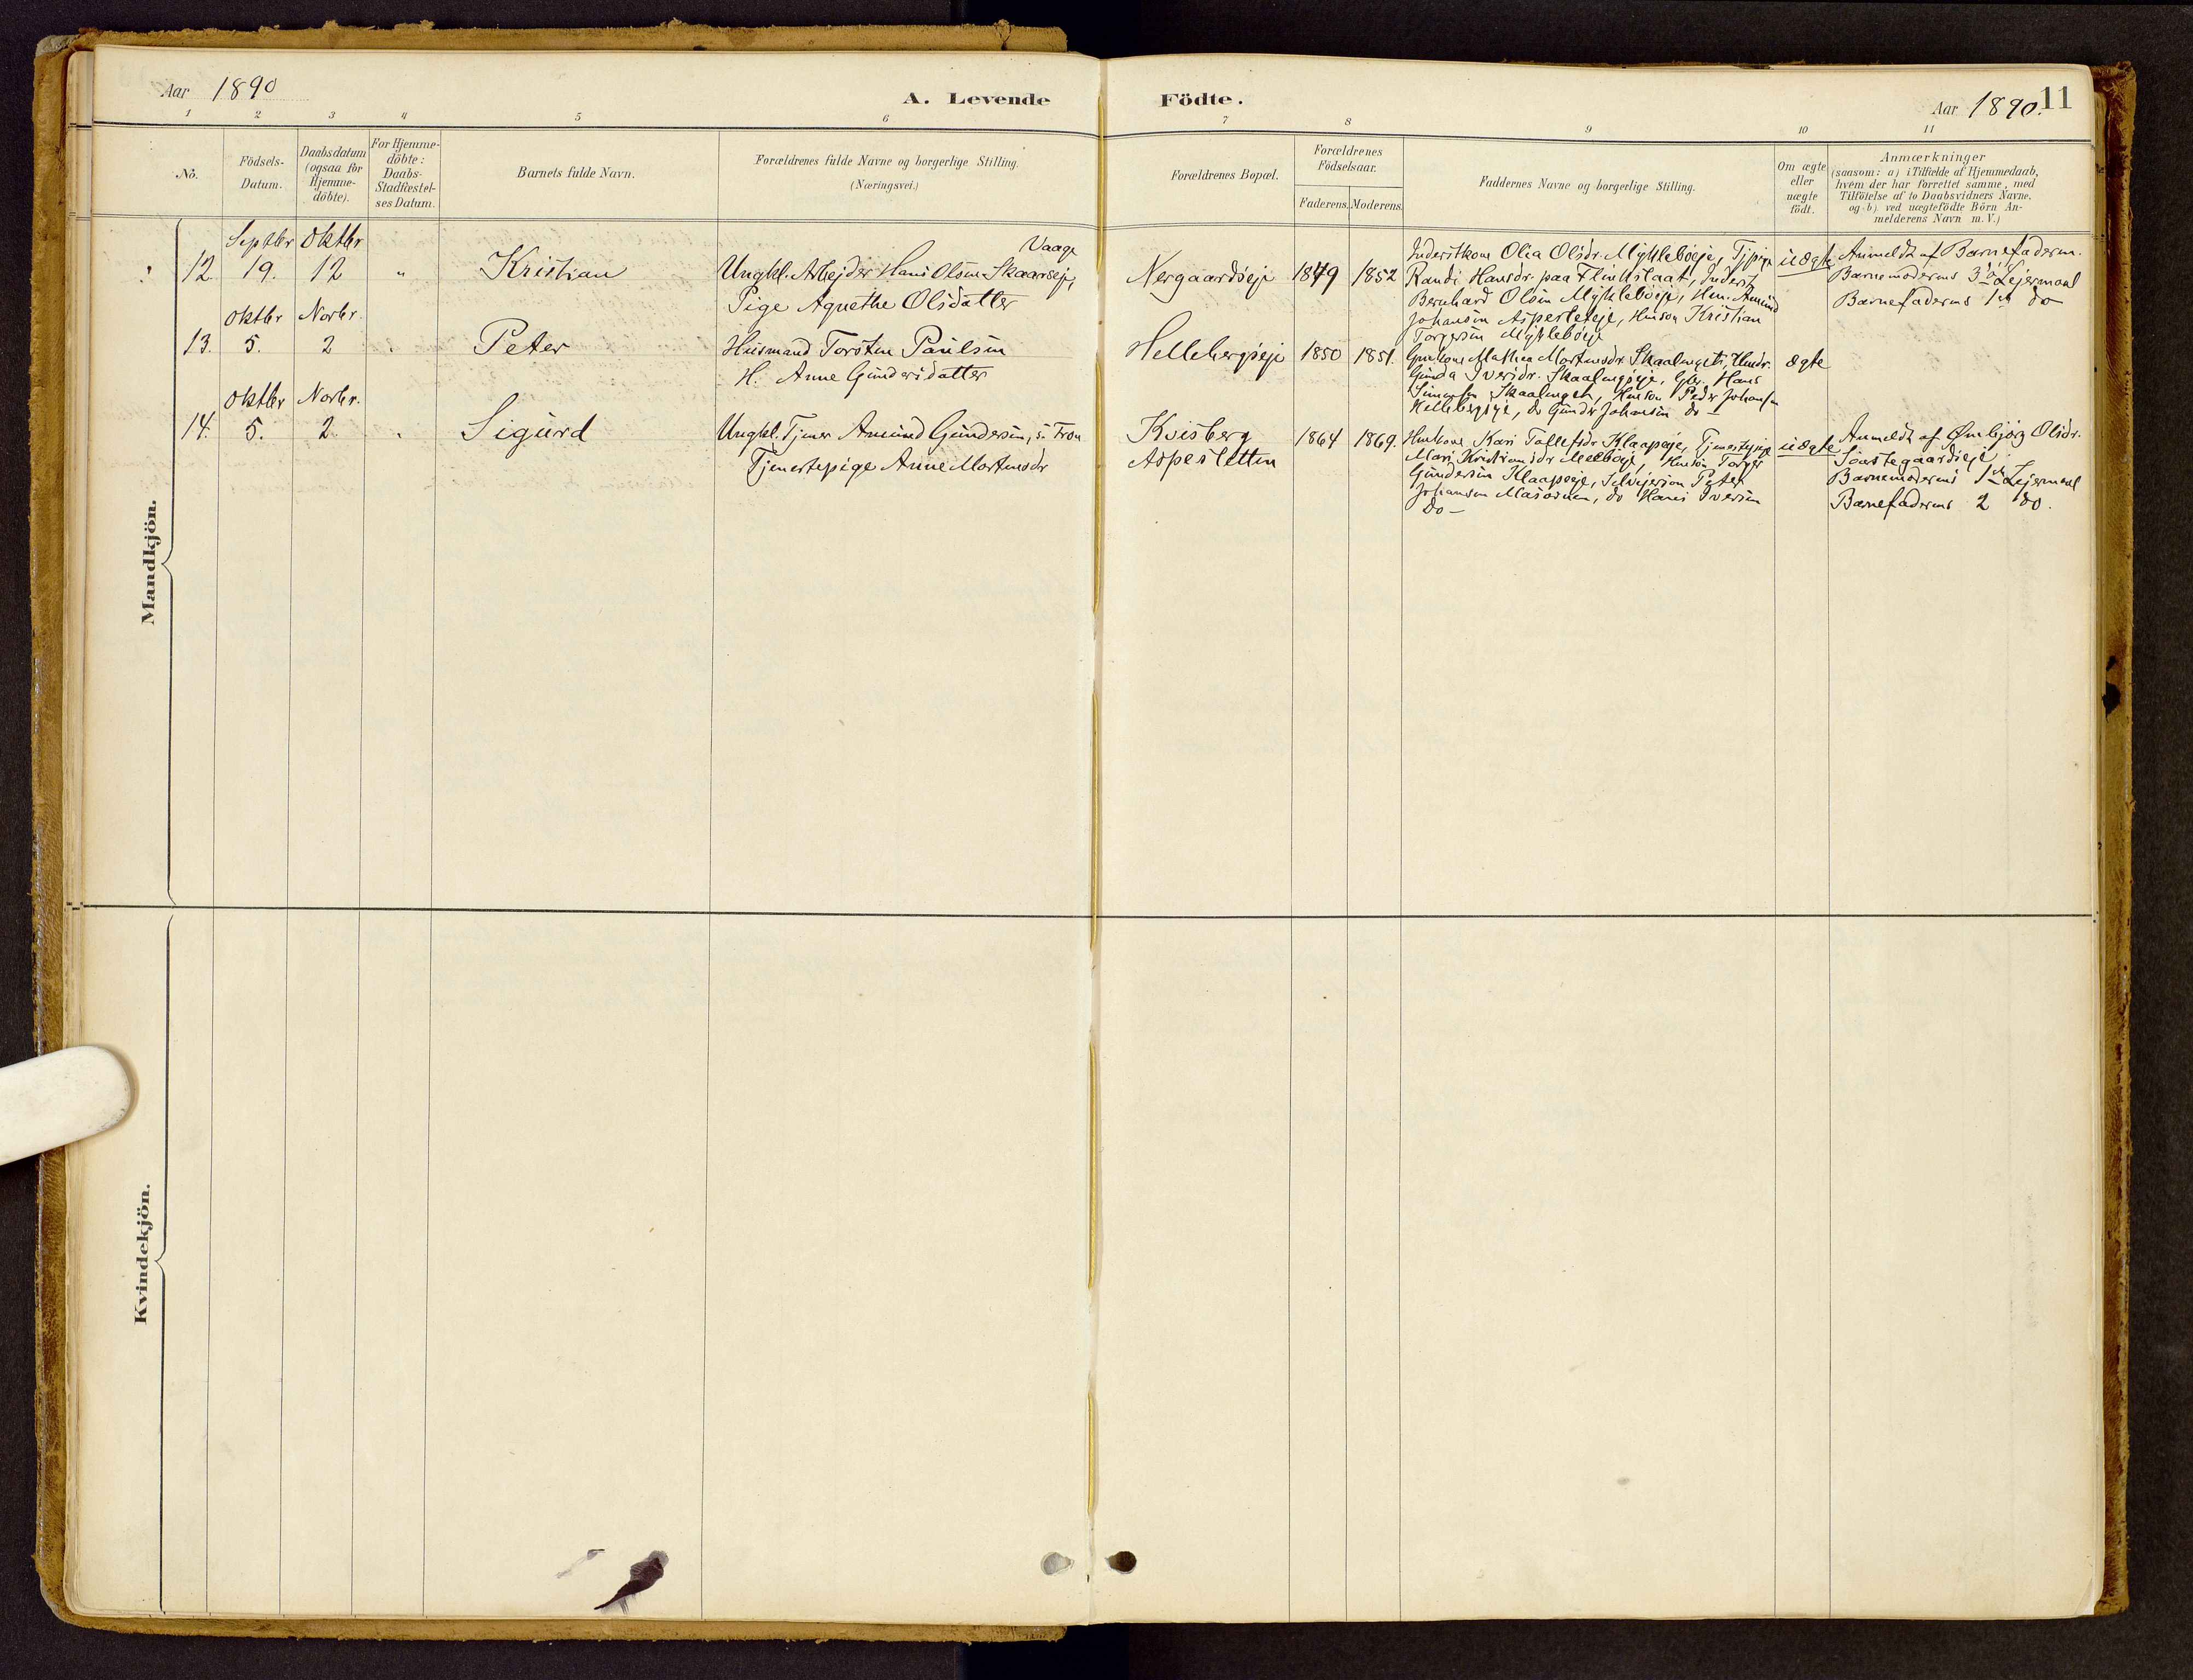 Aar 1890
A. Levende
Födte.
Aar 1890.
11
1 2 3 4 5 6 7 8 9 10 11
No.
Födsels-
Datum.
Daabsdatum
(ogsaa for
Hjemme-
döbte).
For Hjemme-
döbte:
Daabs-
Stadfæstel-
ses Datum.
Barnets fulde Navn.
Forældrenes fulde Navne og borgerlige Stilling.
(Næringsvei.)
Forældrenes Bopæl.
Forældrenes
Födselsaar.
Faderens. Moderens.
Faddernes Navne og borgerlige Stilling.
Om ægte
eller
uægte
födt.
Anmærkninger
(saasom: a) i Tilfælde af Hjemmedaab,
hvem der har forrettet samme, med
Tilföielse af to Daabsvidners Navne.
og b) ved uægtefödte Börn An-
melderens Navn m.V.)
Mandkjön.
Septbr Oktbr
12. 19. 12 " Kristian
Vaage
Ungkl. Arbejder Hans Olsen Skaarseje,
Pige Agnethe Olsdatter
Nergaardseje 1849 1852
Inderstkone Olea Olsdr. Mykleböeje, Tjpige
Randi Hansdr. paa Inderst
Bernhard Olsen Mykleböeje, Amund
Johansen Aspesleteje, Kristian
Torgersen Mykleböeje
uægte
Anmeldt af Barnefaderen.
Barnemoderens 3die Lejermaal
Barnefaderens 1st do
Oktbr Novbr.
13. 5. 2 " Peter
Husmand Torsten Paulsen
H. Anne Gundersdatter
Hellebergseje 1850 1851.
Mathea Mortensdr. Skaalenget,
Gunda Iversdr. Skaalengseje, Hans
Simensen Skaalenget, Peder Johansen
Hellebergseje, do Gunder Johansen do —
ægte
Oktbr Novbr.
14. 5. 2 " Sigurd
Ungkl. Tjener Amund Gundersen, s. Fron
Tjenestepige Anne Mortensdr
Kvisberg
Aspesletten
1864 1869.
Kari Tollefsdr Klaapeje, Tjenestepige
Mari Kristiansdr Melböeje, Torger
Gundersen Klaapeje, Selvejer Peter
Johansen do Hans Iversen
do —
uægte
Anmeldt af Ønbjørg Olsdr.
Barnemoderens 1ste Lejermaal
Barnefaderens 2 do.
Kvindekjön.